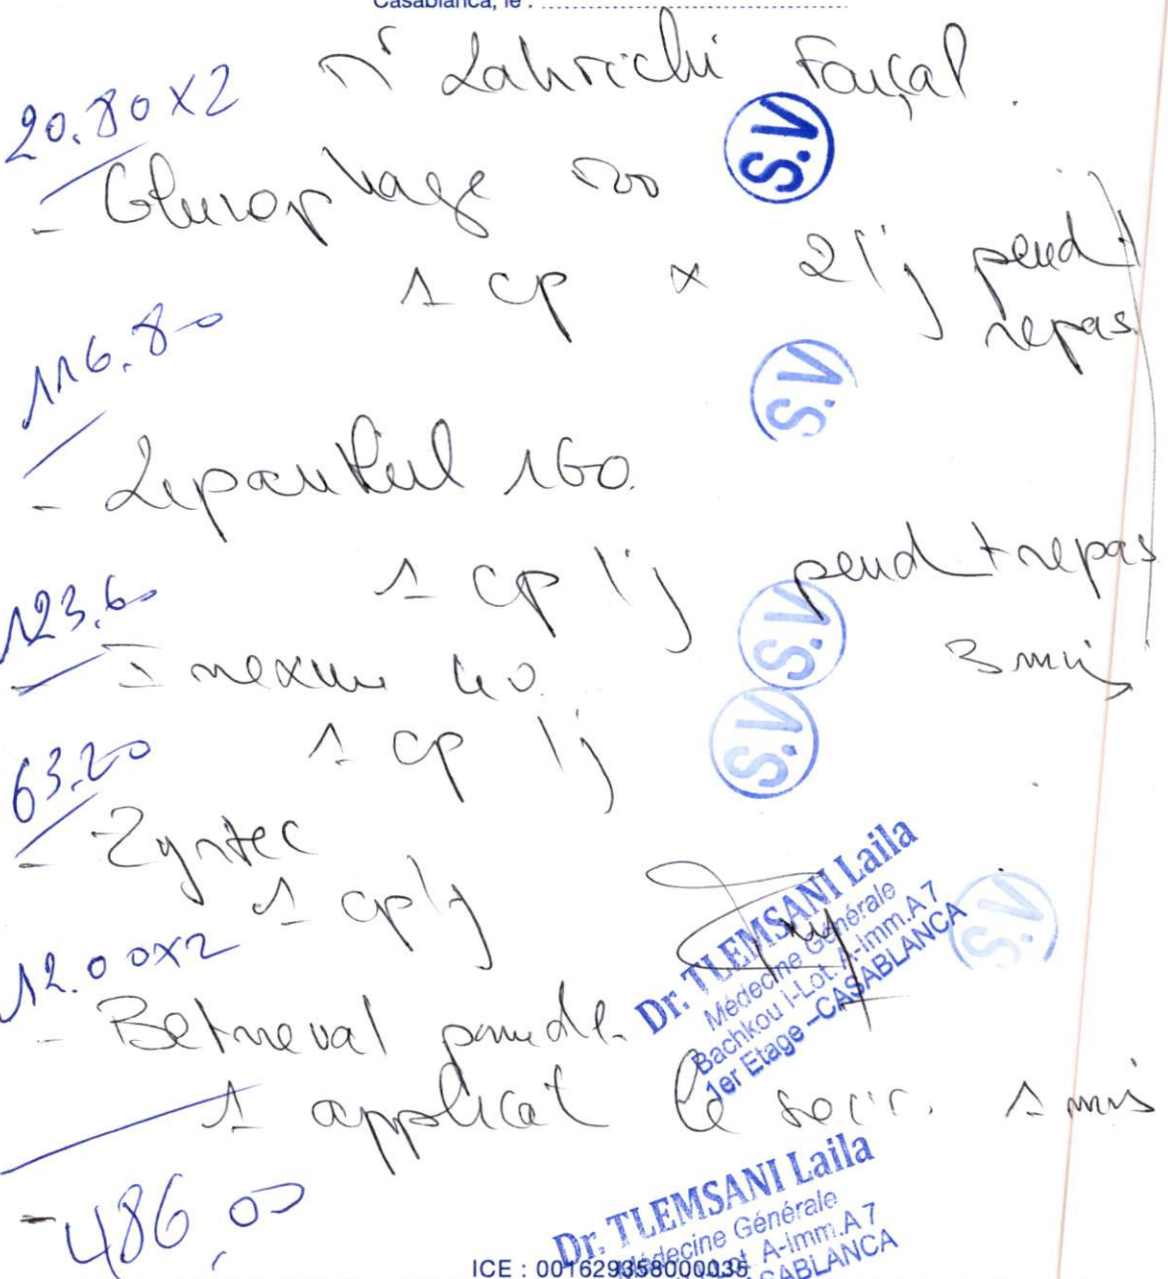 Casablanca, le :
Mr Lahrichi Fayçal.
20.80 x 2
S.V
- Glucophage 500
1 cp x 2 / j pendt
repas
116.80
S.V
- Lipanthyl 160
1 cp / j pendt repas
S.V
3 mois
123.60
- Inexium 40
1 cp / j
S.V
63.20
- Zyrtec
1 cp / j
S.V
12.00 x 2
- Betneval pomde.
1 applicat le soir. 1 mois
Dr. TLEMSANI Laila
Médecine Générale
Bachkou I-Lot. A-Imm.A 7
1er Etage –CASABLANCA
486,00
Dr. TLEMSANI Laila
Médecine Générale
A-Imm.A 7
CASABLANCA
ICE : 001629358000035